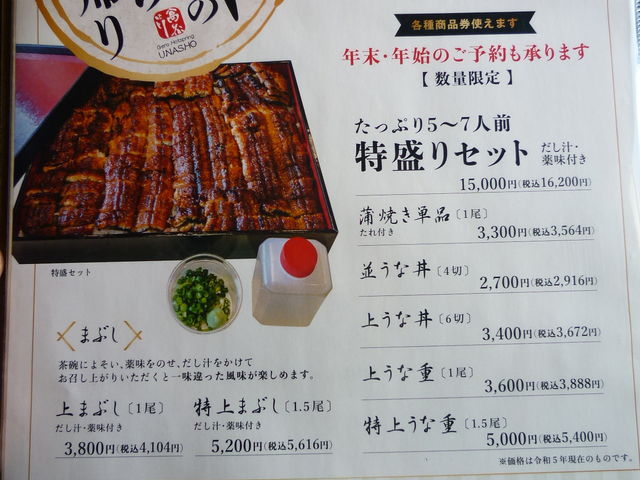 り
の
Gero Hotspring
UNASHO
各種商品券使えます
年末・年始のご予約も承ります
【数量限定】
たっぷり5〜7人前
特盛りセット だし汁・薬味付き
15,000円(税込16,200円)
蒲焼き単品〔1尾〕
たれ付き
3,300円(税込3,564円)
並うな丼〔4切〕
2,700円(税込2,916円)
上うな丼〔6切〕
3,400円(税込3,672円)
上うな重〔1尾〕
3,600円(税込3,888円)
特上うな重〔1.5尾〕
5,000円(税込5,400円)
※価格は令和5年現在のものです。
特盛セット
まぶし
茶碗によそい、薬味をのせ、だし汁をかけて
お召し上がりいただくと一味違った風味が楽しめます。
上まぶし〔1尾〕
だし汁・薬味付き
3,800円(税込4,104円)
特上まぶし〔1.5尾〕
だし汁・薬味付き
5,200円(税込5,616円)